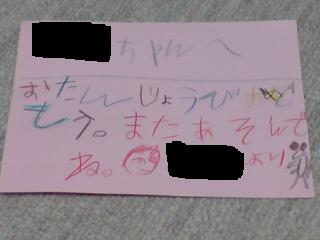 ちゃんへ
おたんじょうびおめで
とう。またあそんで
ね。より